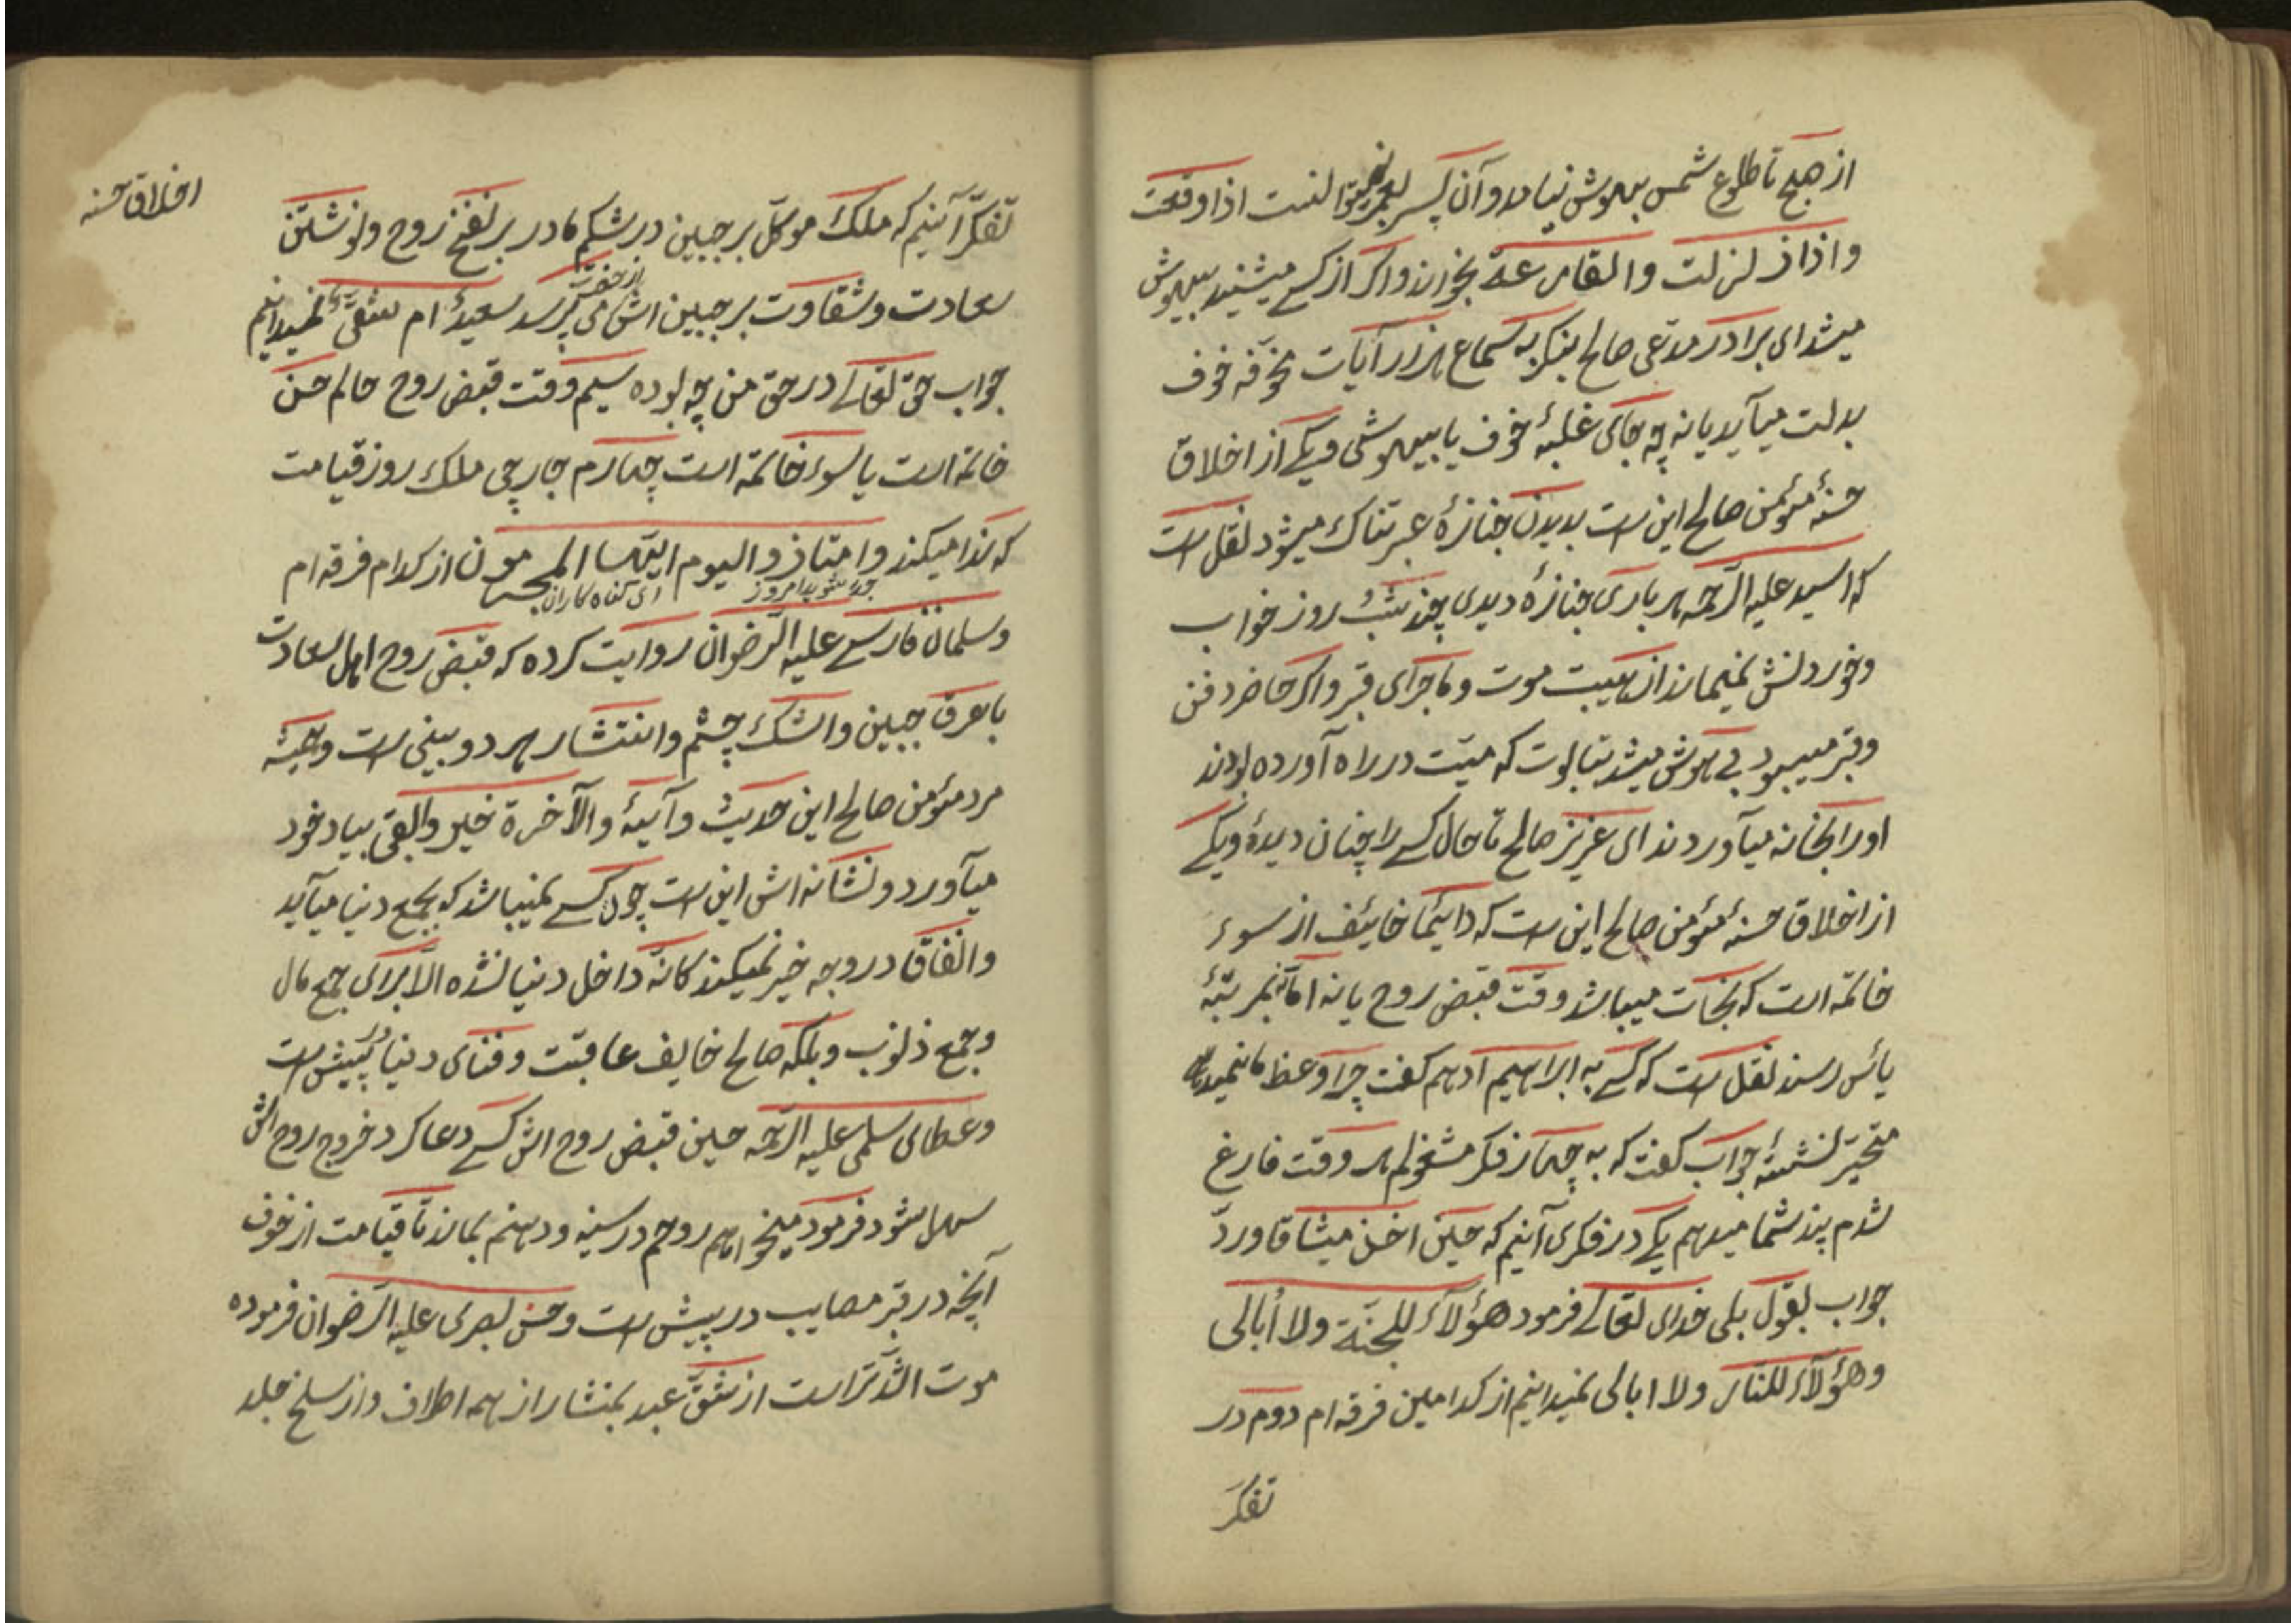 از صبح تا طلوع شمس بیهوش نیامد و آن پسر نمیتوانست اذا وقعت
و اذا زلزلت و القارعة بخواند و اگر از کسے میشنید بیهوش
میشد ای برادر مدّعی صالح بنکر به سماع هزار آیات مخوّفه خوف
بدلت میآید یا نه چه جای غلبهٔ خوف یا بیهوشی و یکے از اخلاق
حسنهٔ مؤمن صالح این است بدیدن جنازهٔ عبرتناک میشود نقل است
که اسید علیه الرّحمه هر باری جنازهٔ دیدی چند شب و روز خواب
و خوردنش نمیماند از هیبت موت و ماجرای قبر و اگر حاضر دفن
و قبر میبود بی هوش میشد بتابوت که میّت در راه آورده بودند
او را بخانه میآوردند ای عزیز صالح تا حال کسے را چنان دیدهٔ و یکے
از اخلاق حسنهٔ مؤمن صالح این است که دائیما خائیف از سوء
خاتمه است که نجات میباشد وقت قبض روح یا نه امّا نه بمرتبهٔ
یأس رسد نقل است که کسے به ابراهیم ادهم گفت چرا وعظ ما نمیدهی
متحیّر نشستهٔ جواب گفت که به چهار فکر مشغولم هر وقت فارغ
شدم پند شما میدهم یکے در فکری آنیم که حین اخذ میثاق اورد
جواب بقول بلی خدای تعالے فرمود هؤلآء للجنّة ولا أبالی
و هؤلآء للنّار ولا ابالی نمیدانیم از کدامین فرقه ام دوم در
تفکّر
اخلاق حسنه
تفکّر آنیم که ملک موکّل بر جبین در شکم مادر بر نفخ روح و نوشتن
سعادت و شقاوت بر جبین اش می پرسد سعیدٌ ام شقیٌّ نمیدانیم
از حضرت
جواب حق تعالے در حق من چه بوده سیم وقت قبض روح حالم حسن
خاتمه است یا سوء خاتمه است چهارم جارچی ملک روز قیامت
که ندا میکند وامتازوا الیوم ایّها المجرمون از کدام فرقه ام
جدا شوید امروز ای گناه کاران
و سلمان فارسے علیه الرّضوان روایت کرده که قبض روح اهل سعادت
با عرق جبین و اشک چشم و انتشار هر دو بینی است و همیشه
مرد مؤمن صالح این حدیث و آییهٔ والآخرة خیر وابقی بیاد خود
میآورد و نشانه اش این است چون کسے نمیباشد که بجمع دنیا میآید
و انفاق در وجه خیر نمیکند کانّه داخل دنیا نشده الّا برای جمع مال
و جمع ذنوب و بلکه صالح خایف عاقبت و فنای دنیا در پیش است
و عطای سلمی علیه الرّحمه حین قبض روح اش کسے دعا کرد خروج روح اش
سهل شود فرمود میخواهم روحم در سینه و دهنم بماند تا قیامت از خوف
آنچه در قبر مصایب در پیش است و حسن بصری علیه الرّضوان فرموده
موت اشدّ تر است از شقّ عبد بمنشار از همه اطراف و از سلخ جلد